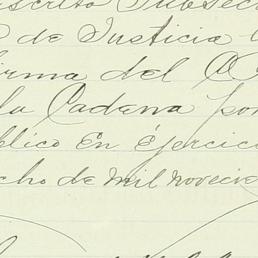 scrito Subsec
de Justicia
firma del
la Cadena por
blico En Ejercic
cho de mil novecie